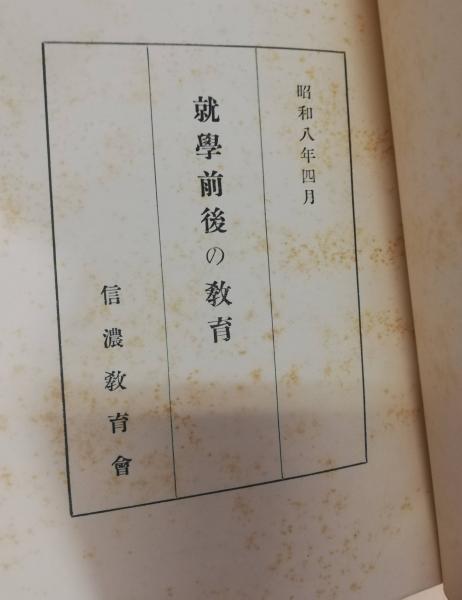 昭和八年四月
就學前後の敎育
信濃敎育會